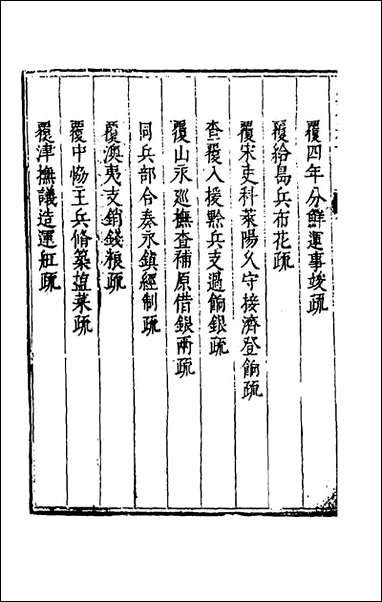 覆四年分鮮運事竣疏
覆給島兵布花疏
覆宋吏科萊陽久守接濟登餉疏
查覆入援黔兵支過餉銀疏
覆山永巡撫查補原借銀兩疏
同兵部合奏永鎮經制疏
覆澳夷支銷錢粮疏
覆中協王兵脩築𥔲萊疏
覆津撫議造運舡疏